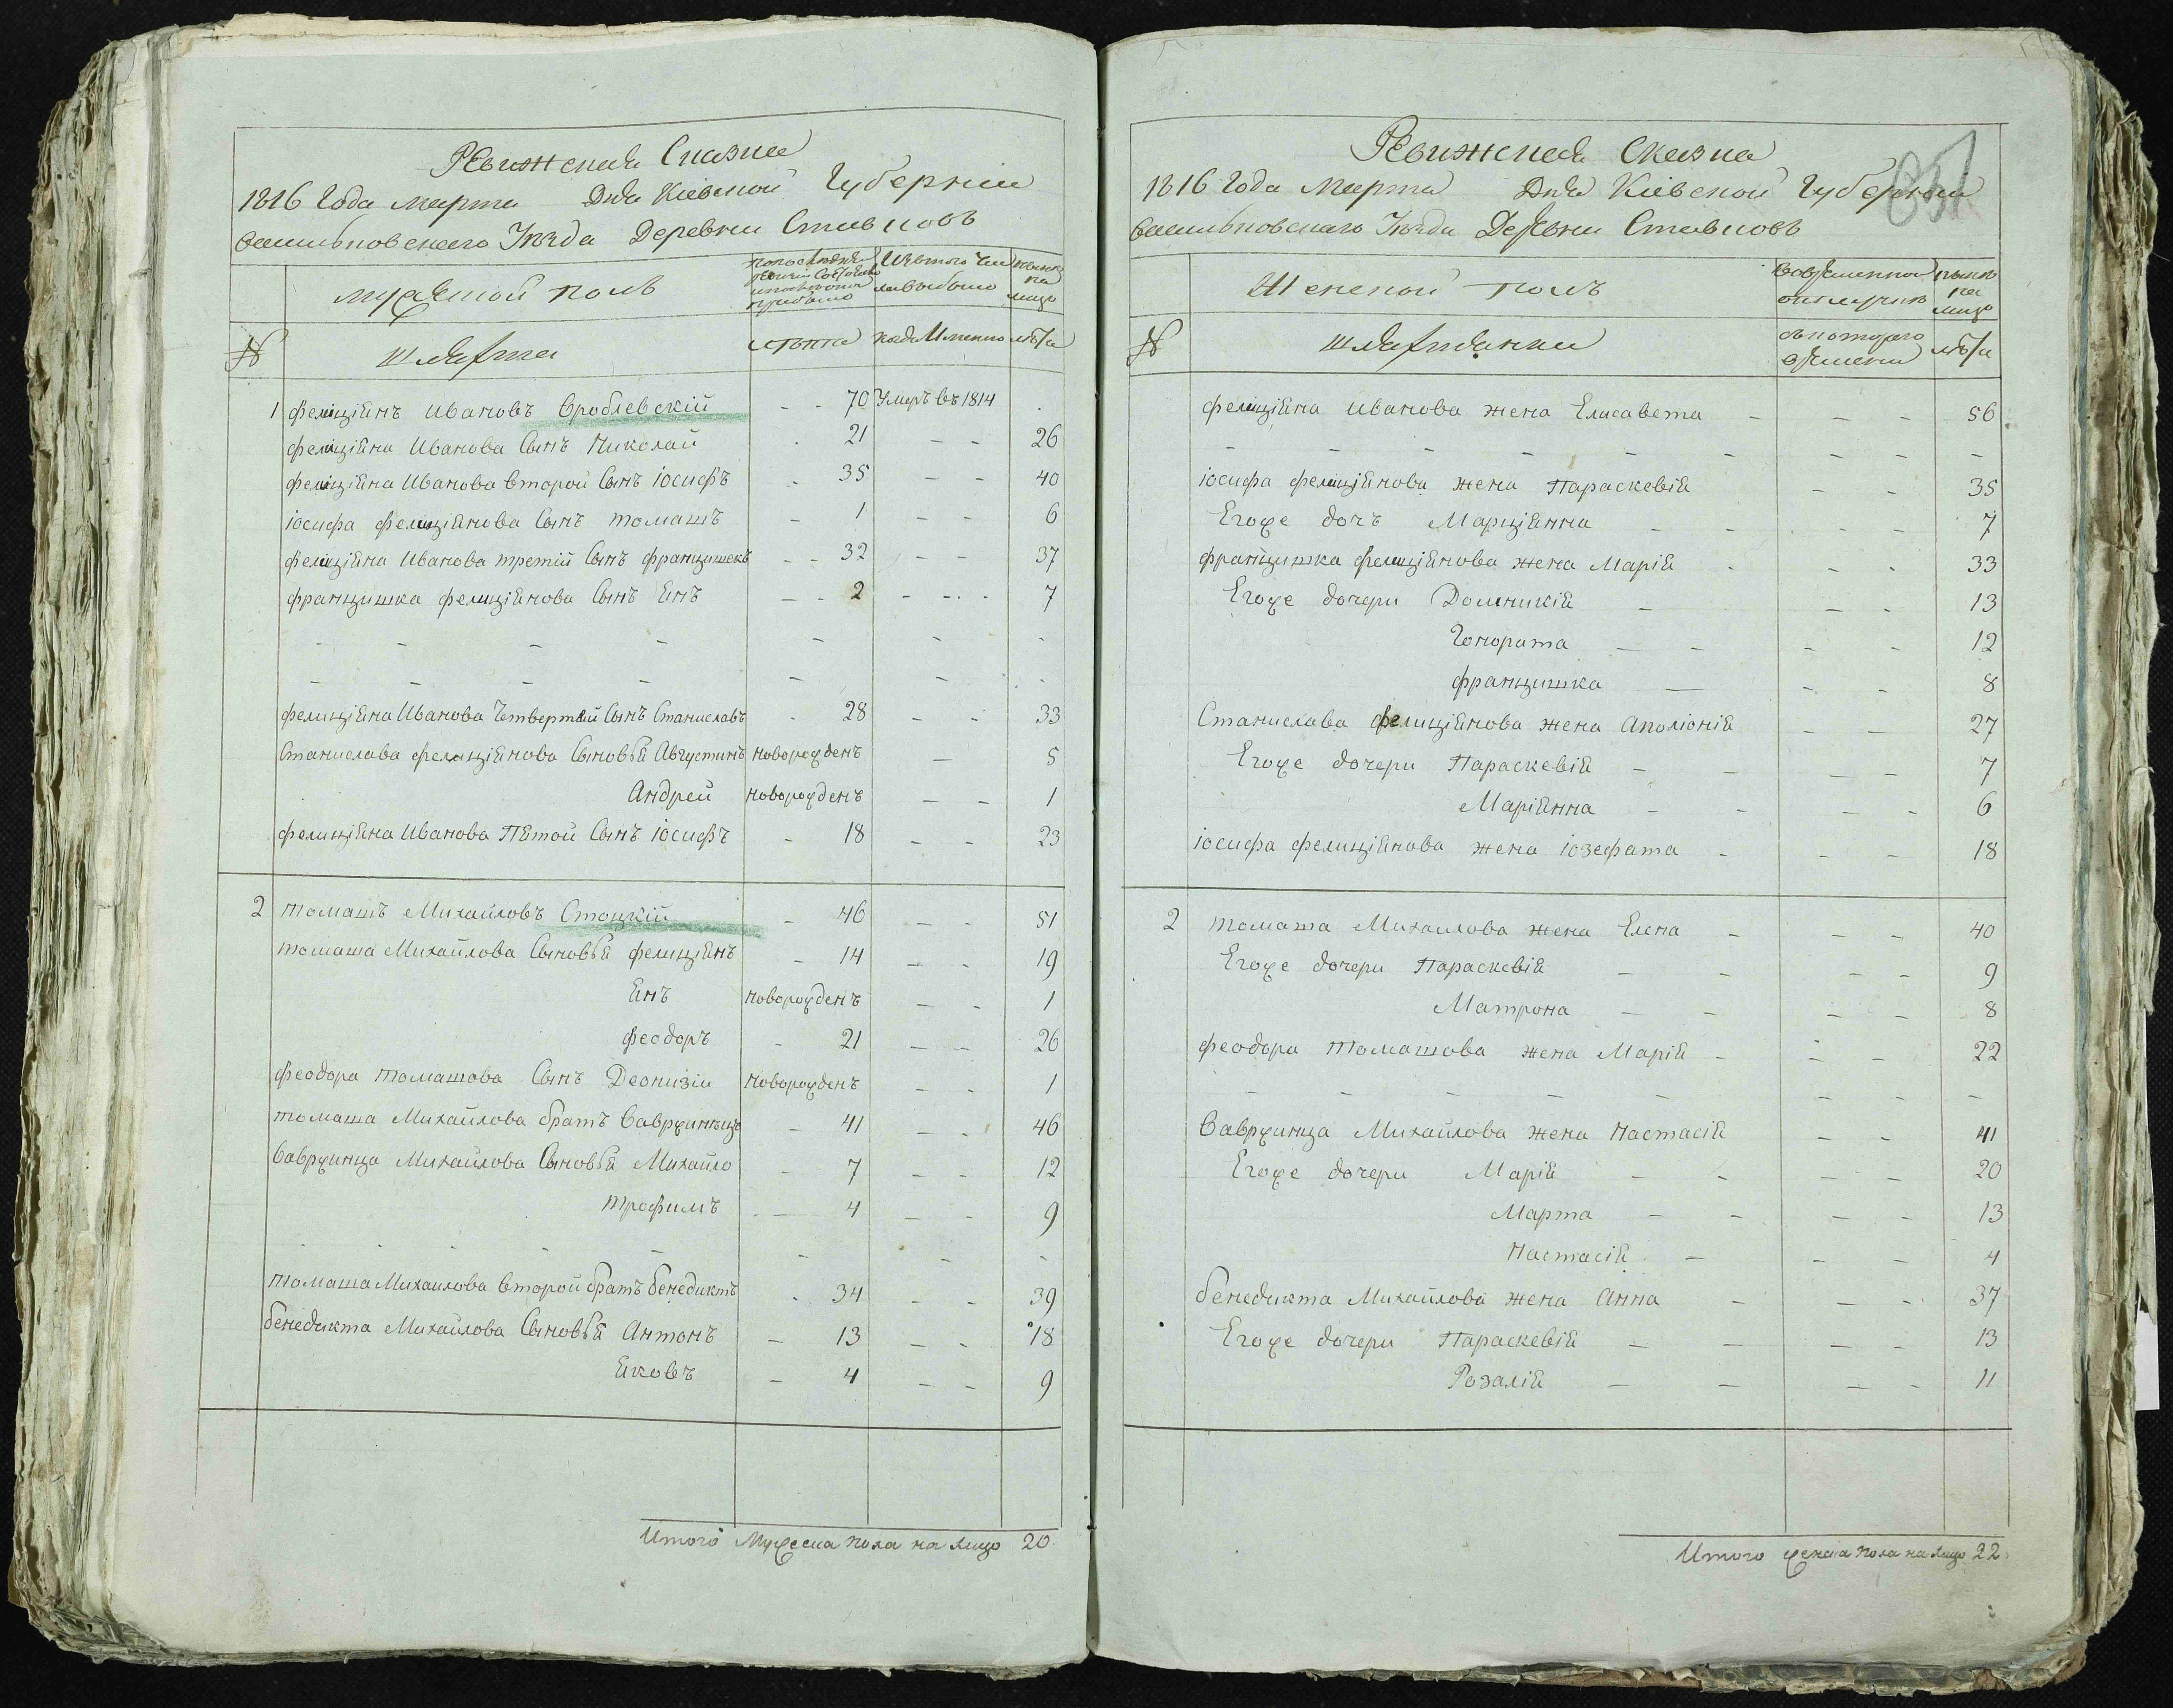 Ревижская Сказка
1816 Года марта Дня Кіевской Губерніи
Васильковскаго Уѣзда Деревни Ставковъ
мужеской полъ
по последней ревизіи состояло и после оной прибыло
Изъ того числа выбыло
ныне на лицо
№ шляхта лѣта когда Именно лѣта
1 фелиціянъ Ивановъ Вроблевскій - - 70 Умеръ въ 1814 -
фелиціяна Иванова Сынъ Николай - 21 - - 26
фелиціяна Иванова второй Сынъ іосифъ - 35 - - 40
іосифа фелиціянова Сынъ томашъ - 1 - - 6
фелиціяна Иванова третій Сынъ францишекъ - - 32 - - 37
францишка фелиціянова Сынъ Янъ - - 2 - - - 7
- - - - - - -
- - - - - - -
фелиціяна Иванова Четвертый Сынъ Станиславъ - 28 - - 33
Станислава фелиціянова Сыновья Августинъ новорожденъ - 5
Андрей новорожденъ - - 1
фелиціяна Иванова Пятой Сынъ іосифъ - 18 - - 23
2 томашъ Михайловъ Стоцкій - 46 - - 51
томаша Михайлова Сыновья фелиціянъ - 14 - - 19
Янъ новорожденъ - - 1
феодоръ - 21 - - 26
феодора томашова Сынъ Деонизіи новорожденъ - - 1
томаша Михайлова братъ Вавржинецъ - 41 - - 46
Вавржинца Михайлова Сыновья Михайло - 7 - - 12
трофимъ - 4 - - 9
- - - - - - - -
томаша Михаилова второй братъ бенедиктъ - 34 - - 39
бенедикта Михайлова Сыновья Антонъ - 13 - - 18
Яковъ - 4 - - 9
Итого Мужеска пола на лицо 20
Ревижская Сказка
1816 Года Марта Дня Кіевской Губерніи
Васильковскаго Уѣзда Деревни Ставковъ
Женской полъ
во временной отлучке
ныне на лицо
№ шляхтянки съ котораго времени лѣта
фелиціяна Иванова жена Елисавета - - - 56
- - - - - - - - -
іосифа фелиціянова жена Параскевія - - 35
Егоже дочъ Марціянна - - - - 7
францишка фелиціянова жена Марія - - - 33
Егоже дочери Доминикія - - - 13
Гонората - - - - 12
францишка - - - 8
Станислава фелиціянова жена Аполіонія - - 27
Егоже дочери Параскевія - - - 7
Маріянна - - - - 6
іосифа фелиціянова жена іозефата - - - 18
2 томаша Михаилова жена Елена - - - 40
Егоже дочери Параскевія - - - - 9
Матрона - - - - 8
феодора томашова жена Марія - - - 22
- - - - - - - -
Вавржинца Михайлова жена Настасія - - 41
Егоже дочери Марія - - - - 20
Марта - - - - 13
Настасія - - - 4
бенедикта Михайлова жена Анна - - - 37
Егоже дочери Параскевія - - - - 13
Розалія - - - - 11
Итого женска пола на лицо 22